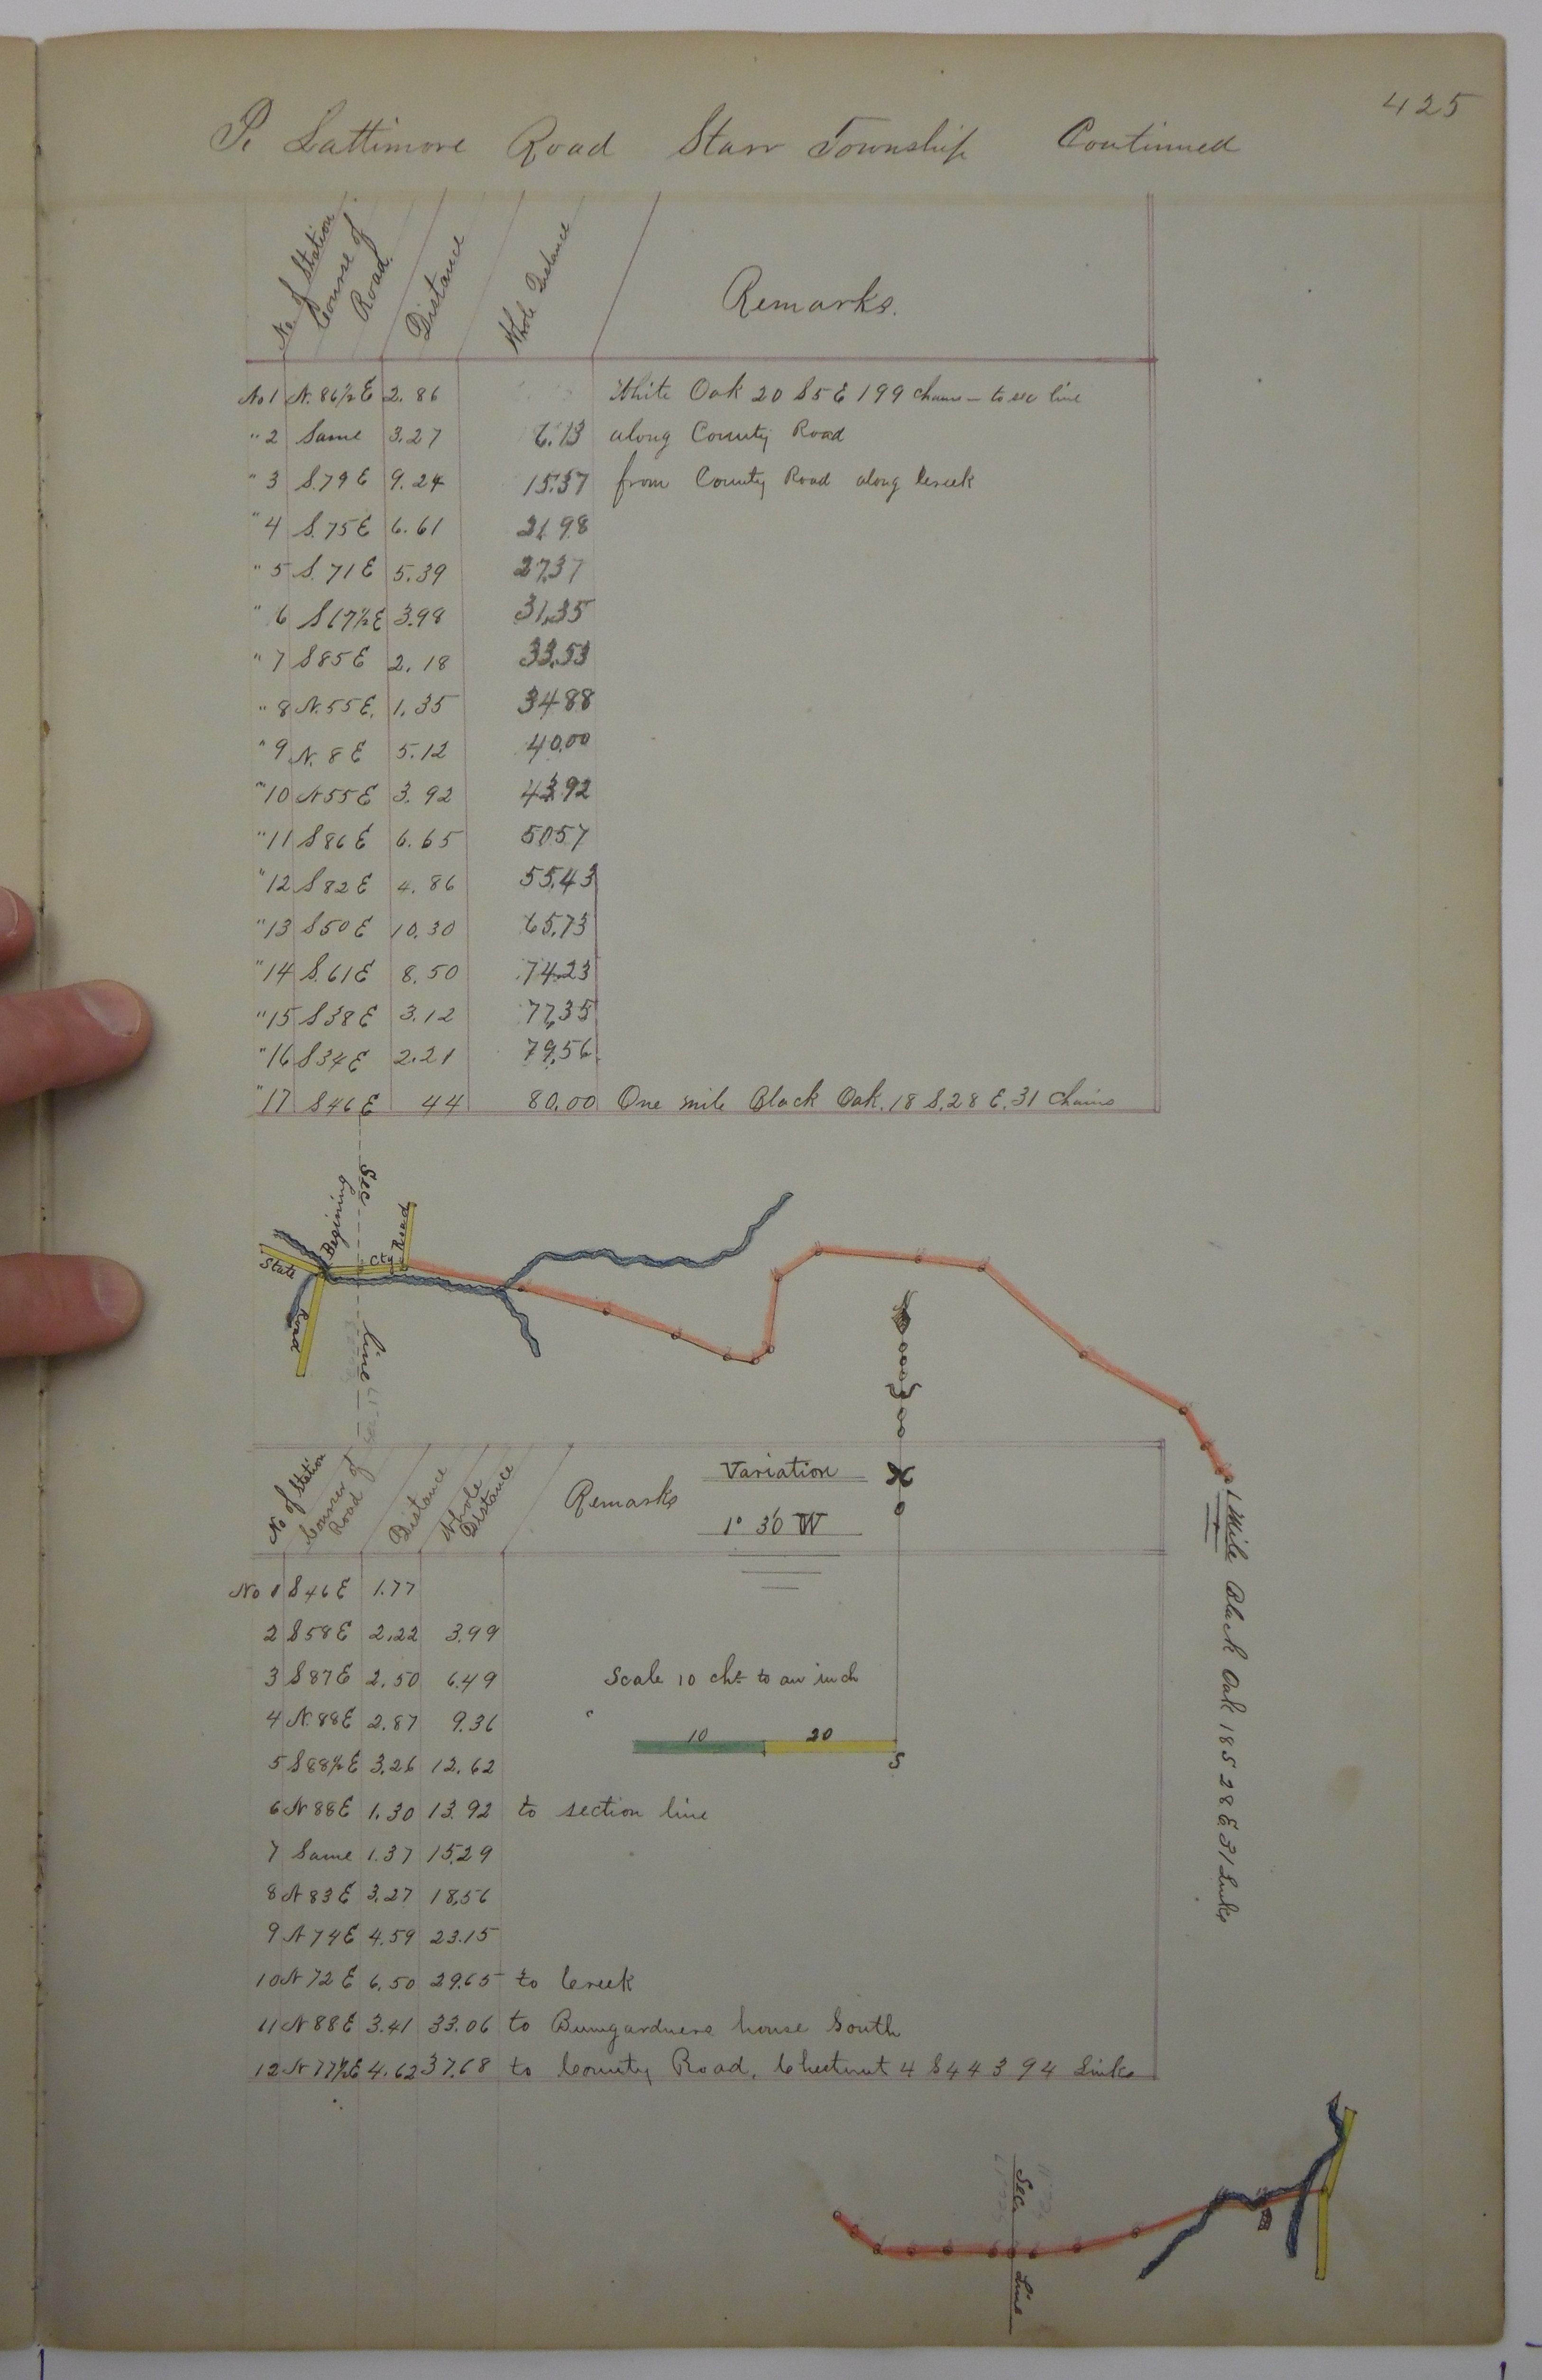 425
P. Lattimore Road Starr Township Continued
No of Station Course of Road. Distance Whole Distance Remarks.
No 1 N. 86½ E 2.86 White Oak 20 S5E 199 chains — to sec line
" 2 Same 3.27 6.13 along County Road
" 3 S.79 E 9.24 15.37 from County Road along Creek
" 4 S.75 E 6.61 21.98
" 5 S. 71 E 5.39 27.37
" 6 S67½E 3.98 31.35
" 7 S85E 2.18 33.53
" 8 N.55E. 1.35 34.88
" 9 N. 8 E 5.12 40.00
" 10 N55E 3.92 43.92
" 11 S86 E 6.65 50.57
" 12 S82 E 4.86 55.43
" 13 S50 E 10.30 65.73
" 14 S.61 E 8.50 74.23
" 15 S38 E 3.12 77.35
" 16 S34E 2.21 79.56
" 17 S46 E 44 80.00 One mile Black Oak. 18 S.28 E. 31 Chains
Begining
Sec line
State Road
Cty Road
No of Station Courses of Road Distance Whole Distance Remarks
Variation
1° 30' W
No 1 S46E 1.77
2 S58E 2.22 3.99
3 S87E 2.50 6.49
4 N.88E 2.87 9.36
5 S88½E 3.26 12.62
6 N88E 1.30 13.92 to section line
7 Same 1.37 15.29
8 N 83 E 3.27 18.56
9 N 74E 4.59 23.15
10 N 72 E 6.50 29.65 to Creek
11 N 88E 3.41 33.06 to Bumgardners house South
12 N 77½E 4.62 37.68 to County Road, Chestnut 4 S44 3 94 Links
Scale 10 chs to an inch
10 20
S
1 Mile Black Oak 18 S 28 E 31 Links
Sec. Line